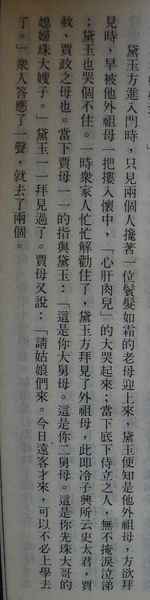 黛玉方進入門時，只見兩個人攙著一位鬢髮如霜的老母迎上來，黛玉便知是他外祖母，方欲拜
見時，早被他外祖母一把摟入懷中，「心肝肉兒」的大哭起來；當下底下侍立之人，無不掩淚泣涕
；黛玉也哭個不住。一時衆家人忙忙解勸住了，黛玉方拜見了外祖母，此即冷子興所云史太君，賈
赦、賈政之母也。當下賈母一一的指與黛玉：「這是你大舅母。這是你二舅母。這是你先珠大哥的
媳婦珠大嫂子。」黛玉一一拜見過了。賈母又說：「請姑娘們來。今日遠客才來，可以不必上學去
了。」衆人答應了一聲，就去了兩個。